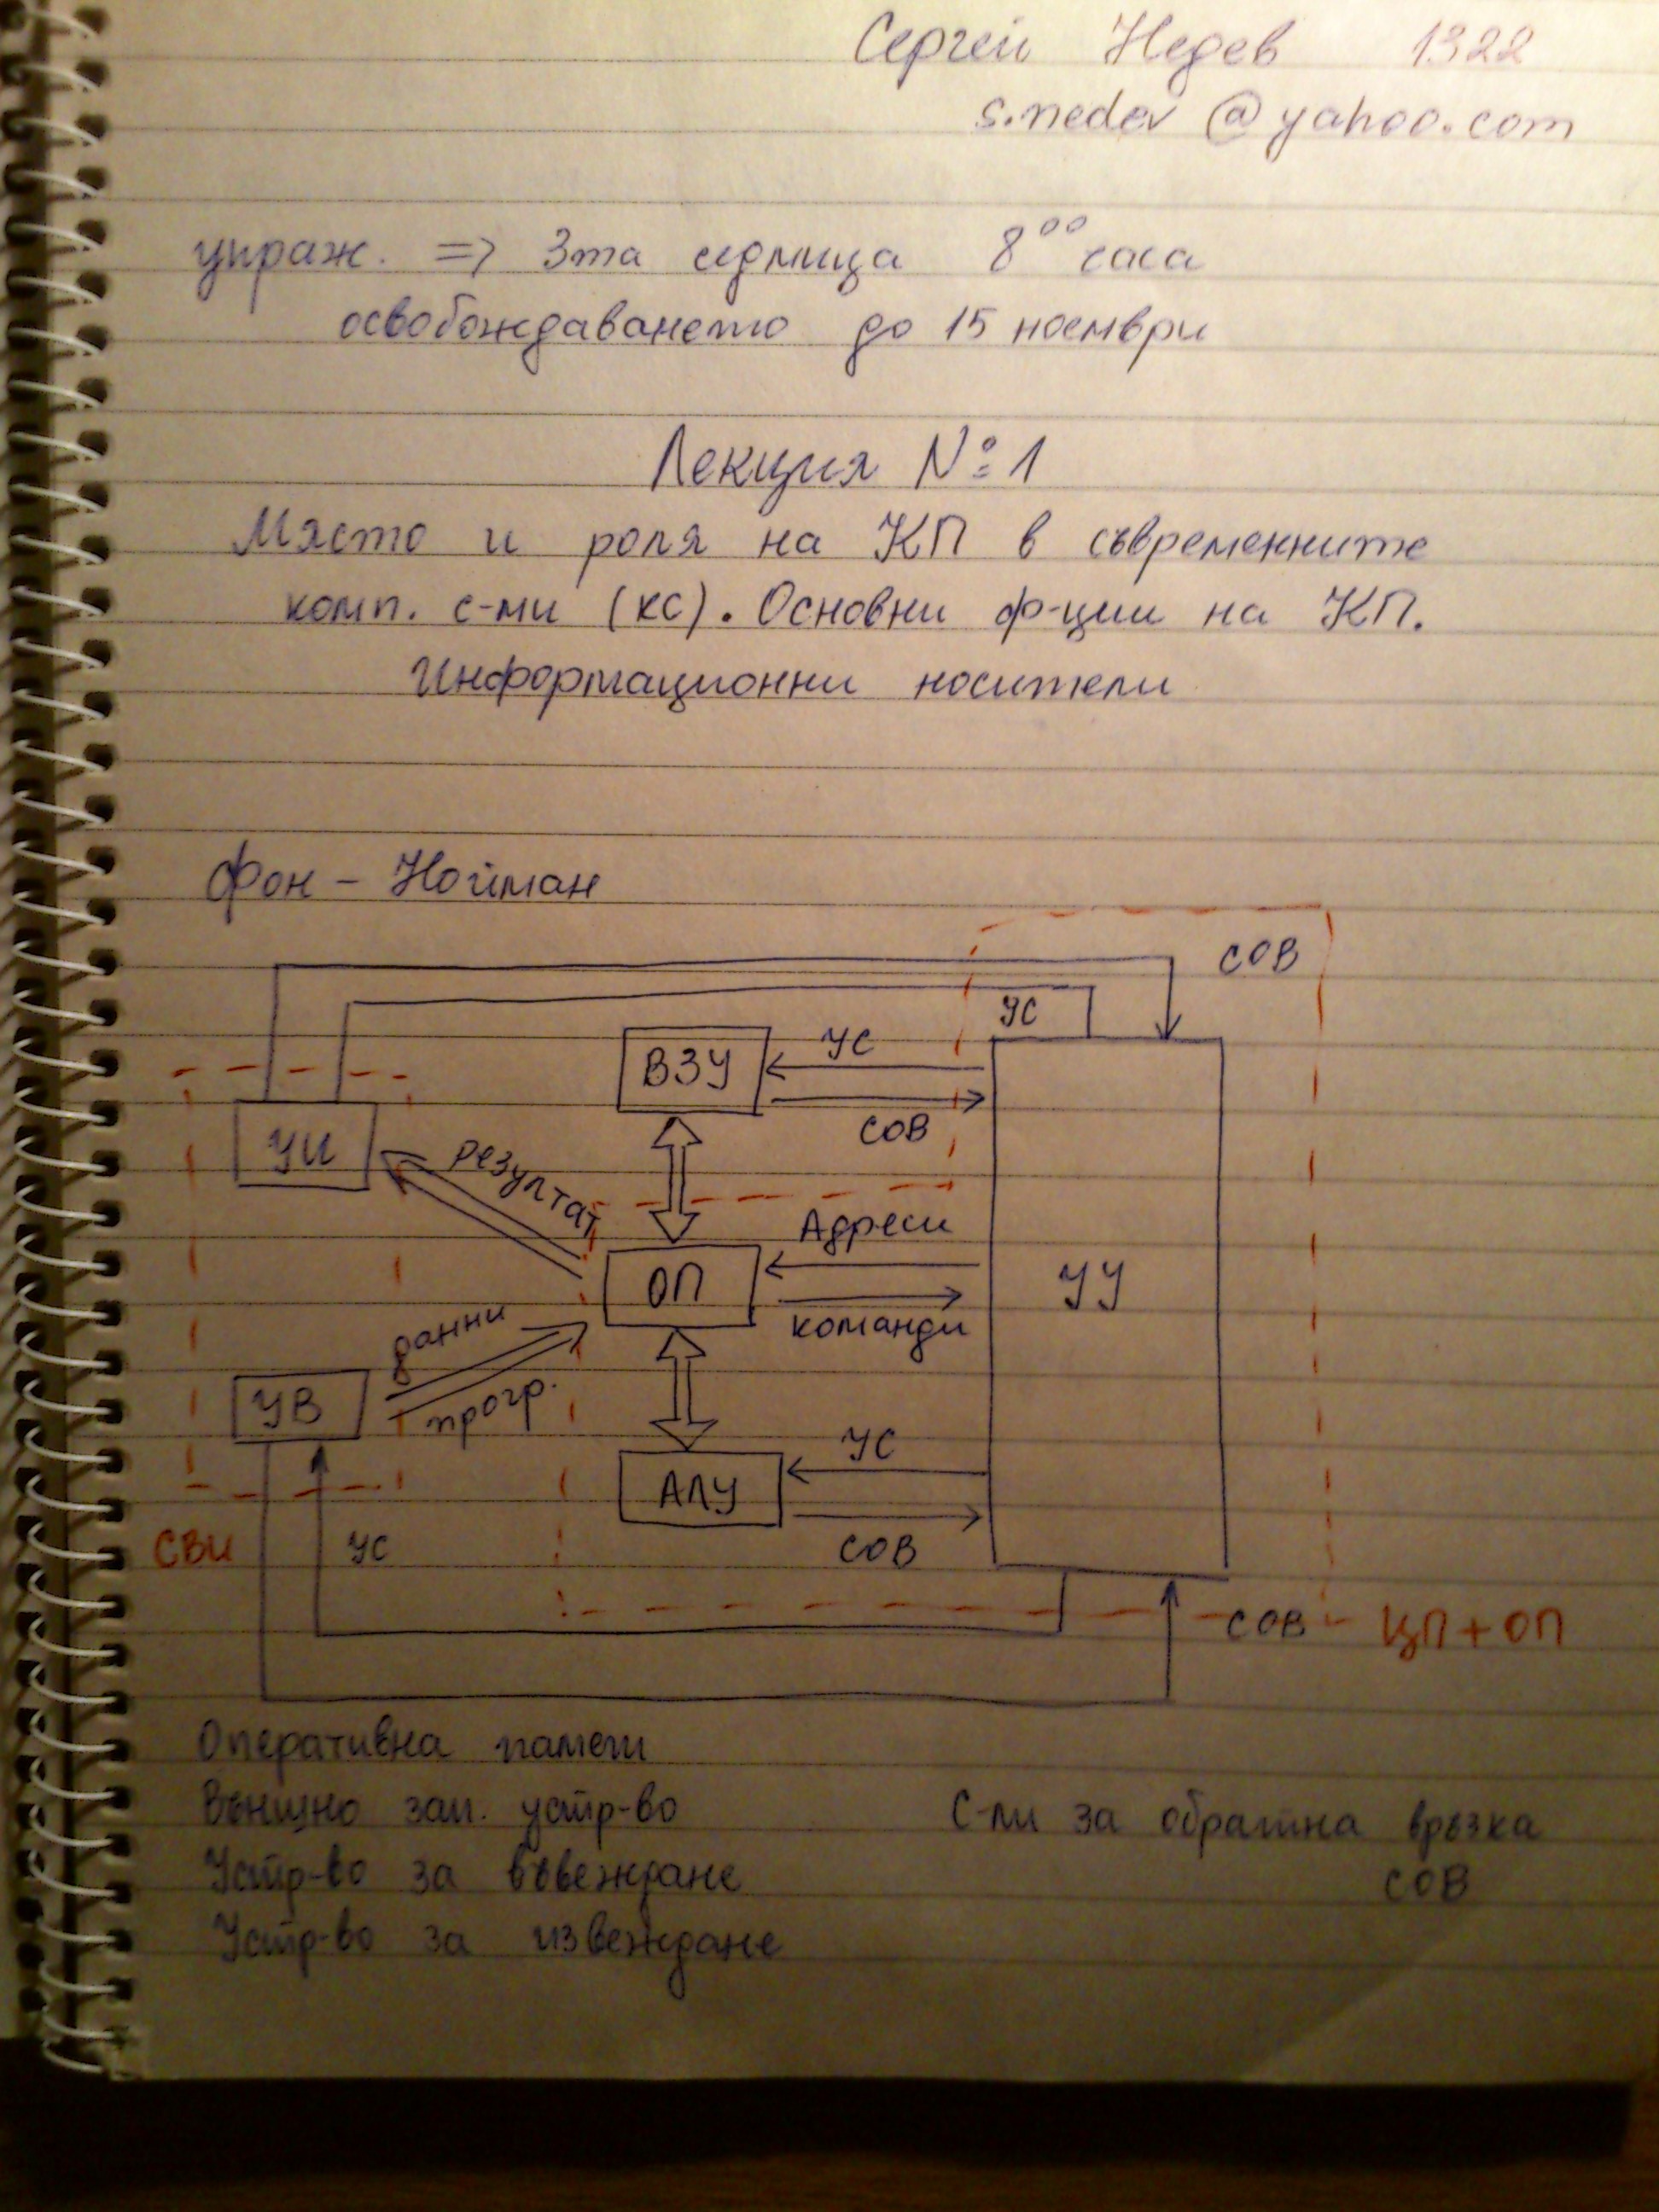 Сергей Недев 1322
s.nedev@yahoo.com
упраж. => 3та седмица 8⁰⁰ часа
освобождаването до 15 ноември
Лекция №1
Място и роля на КП в съвременните
комп. с-ми (КС). Основни ф-ции на КП.
Информационни носители
Фон - Нойман
СОВ
УС
ВЗУ
УС
СОВ
УИ
резултат
Адреси
ОП
команди
УУ
данни
УВ
прогр.
УС
АЛУ
СОВ
СВИ
УС
СОВ
ЦП+ОП
Оперативна памет
Външно зап. устр-во
С-ли за обратна връзка
Устр-во за въвеждане
СОВ
Устр-во за извеждане